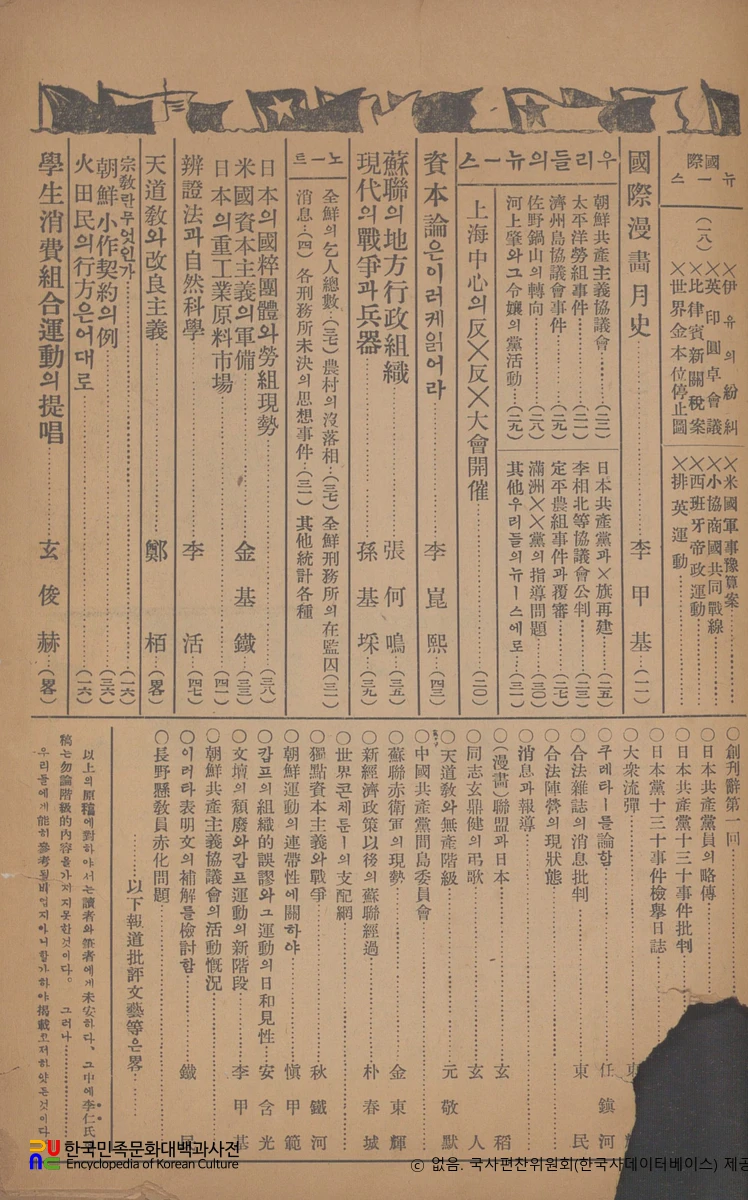 國際
ニュース
(一八)
×伊 유 의 紛 糾
×英印圓卓會議
×比律賓新關稅案
×世界金本位停止圖
×米國軍事豫算案
×小協商國共同戰線
×西班牙帝政運動
×排英運動
國際漫畵月史 李甲基 (一一)
우리들의뉴ー스
朝鮮共產主義協議會 (二三)
太平洋勞組事件 (二一)
濟州島協議會事件 (二九)
佐野鍋山의轉向 (二八)
河上肇와그令孃의黨活動 (二九)
日本共產黨과×旗再建 (二五)
李相北等協議會公判 (二三)
定平農組事件과覆審 (二七)
滿洲××黨의指導問題 (三〇)
其他우리들의뉴ー스에로 (三一)
上海中心의反×反×大會開催 (二〇)
資本論은이러케읽어라 李崑熙 (四三)
蘇聯의地方行政組織 張何鳴 (三五)
現代의戰爭과兵器 孫基埰 (三九)
노ー트
全鮮의乞人總數 (三七) 農村의沒落相 (三七) 全鮮刑務所의在監囚 (三一)
消息 (四) 各刑務所未決의思想事件 (三一) 其他統計各種
日本의國粹團體와勞組現勢 (三八)
米國資本主義의軍備 金基鐵 (三三)
日本의重工業原料市場 (四一)
辨證法과自然科學 李活 (四七)
天道敎와改良主義 鄭栢 (畧)
宗敎란무엇인가 (一六)
朝鮮小作契約의例 (三六)
火田民의行方은어대로 (一六)
學生消費組合運動의提唱 玄俊赫 (畧)
○創刊辭第一回
○日本共產黨員의略傳
○日本共產黨十三十事件批判
○日本黨十三十事件檢擧日誌
○大衆流彈
○쿠레타ー를論함 任鎭河
○合法雜誌의消息批判 東民
○合法陣營의現狀態
○消息과報導
○(漫畵)聯盟과日本 玄稻
○同志玄鼎健의弔歌 玄人
○天道敎와無產階級 元敬默
○中國共產黨間島委員會
○蘇聯赤衛軍의現勢 金東輝
○新經濟政策以後의蘇聯經過 朴春城
○世界콘체룬ー의支配網
○獨點資本主義와戰爭 秋鐵河
○朝鮮運動의連帶性에關하야 愼甲範
○캅프의組織的誤謬와그運動의日和見性 安含光
○文壇의頹廢와캅프運動의新階段 李甲基
○朝鮮共產主義協議會의活動慨況
○이러타表明文의補解를檢討함 鐵民
○長野懸敎員赤化問題
以下報道批評文藝等은畧
以上의原稿에對하야서는讀者와筆者에게未安하다、그中에李仁氏
稿는勿論階級的內容을가지지못한것이다。 그러나
우리들에게能히參考될배잇지아니할가하야揭載코저하얏든것이다
한국민족문화대백과사전
Encyclopedia of Korean Culture
ⓒ 없음. 국사편찬위원회(한국사데이터베이스) 제공